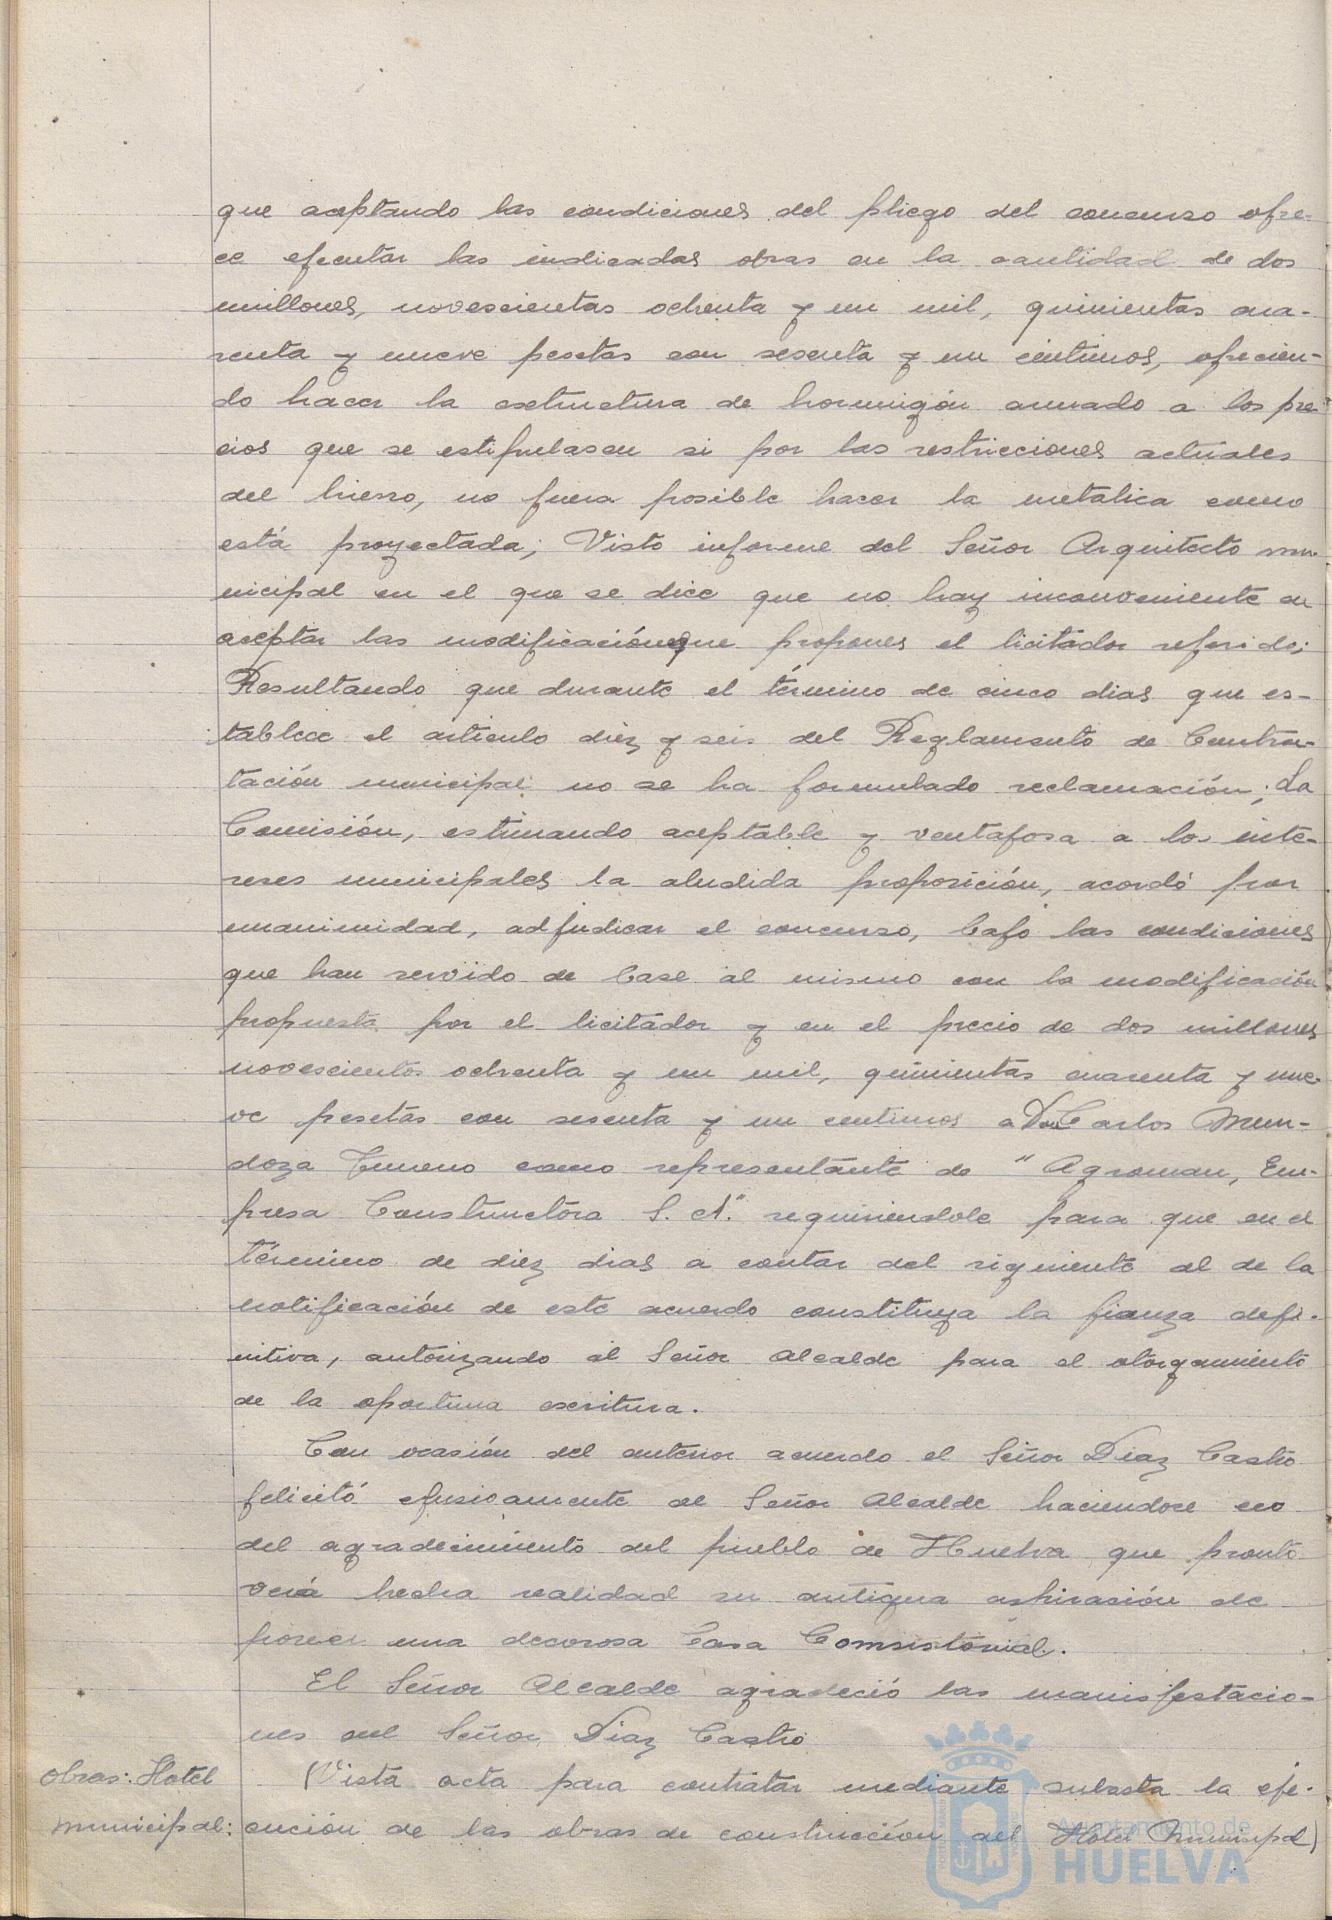 que aceptando las condiciones del pliego del concurso ofre-
ce ejecutar las indicadas obras en la cantidad de dos
millones, novescientas ochenta y un mil, quinientas cua-
renta y nueve pesetas con sesenta y un centimos, ofrecien-
do hacer la estructura de hormigón armado a los pre-
cios que se estipulasen si por las restricciones actuales
del hierro, no fuera posible hacer la metalica como
está proyectada; Visto informe del Señor Arquitecto mu-
nicipal en el que se dice que no hay inconveniente en
aceptar las modificaciónes que propones el licitador referido;
Resultando que durante el término de cinco dias que es-
tablece el articulo diez y seis del Reglamento de Contra-
tación municipal no se ha formulado reclamación; La
Comisión, estimando aceptable y ventajosa a los inte-
reses municipales la aludida proposición, acordó por
unanimidad, adjudicar el concurso, bajo las condiciones
que han servido de base al mismo con la modificación
propuesta por el licitador y en el precio de dos millones
novescientos ochenta y un mil, quinientas cuarenta y nue-
ve pesetas con sesenta y un centimos a Don Carlos Men-
doza Gimeno como representante de "Agroman, Em-
presa Constructora S. A." requiriendole para que en el
término de diez dias a contar del siguiente al de la
notificación de este acuerdo constituya la fianza defi-
nitiva, autorizando al Señor Alcalde para el otorgamiento
de la oportuna escritura.
Con ocasión del anterior acuerdo el Señor Diaz Castro
felicitó efusivamente al Señor Alcalde haciendose eco
del agradecimiento del pueblo de Huelva que pronto
verá hecha realidad su antigua aspiración de
poseer una decorosa Casa Consistorial.
El Señor Alcalde agradeció las manisfestacio-
nes del Señor Diaz Castro
Obras: Hotel
municipal:
(Vista acta para contratar mediante subasta la eje-
cución de las obras de construcción del Hotel Municipal)
Ayuntamiento de
HUELVA